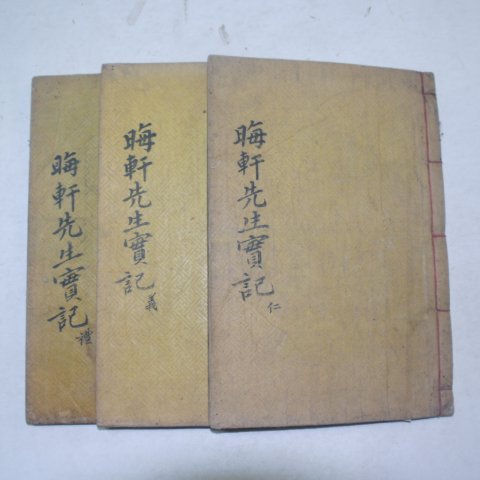 晦軒先生實記 仁
晦軒先生實記 義
晦軒先生實記 禮